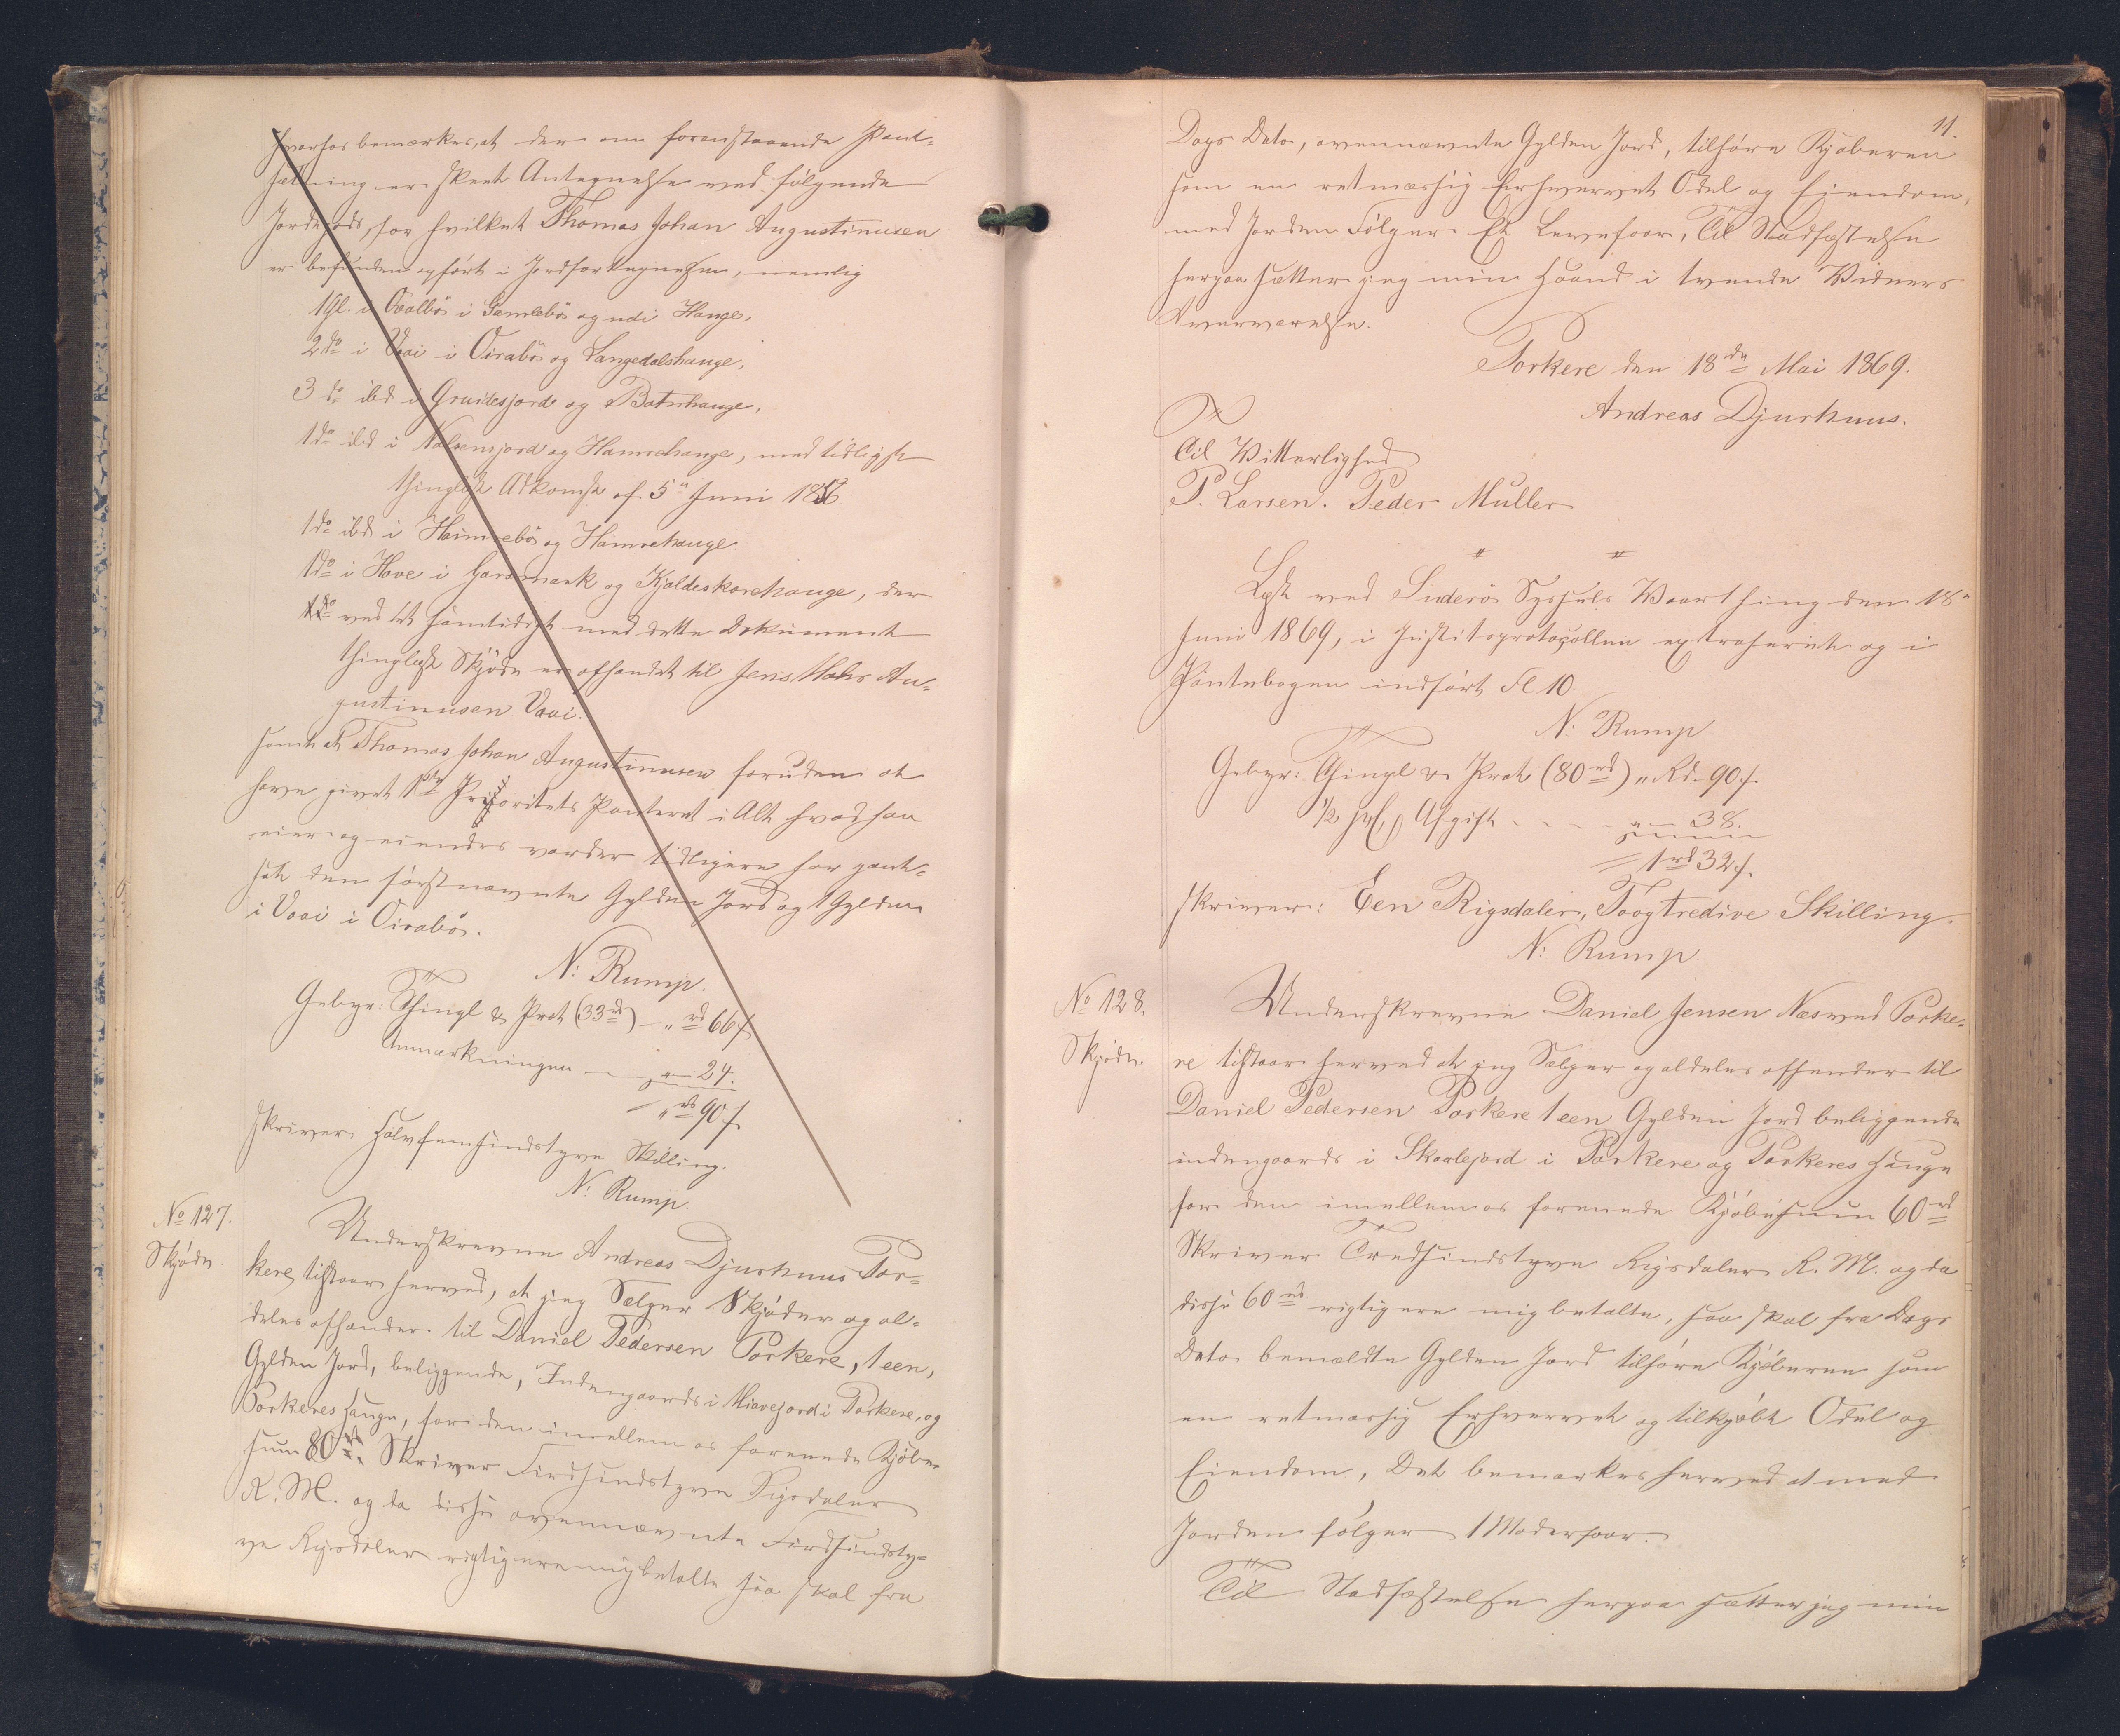 hvorhos bemærkes, at der om foranstaaende Pant-
sætning er skeet Antegnelse ved følgende
Jordegods, for hvilket Thomas Johan Augustinusen
er befunden opført i Jordfortegnelsen, nemlig
1 Gl. i Qvalbö i Gamlebö og udi Hauge,
2 do i Vaai i Öirabö og Langedalshauge,
3 do ibd i Gruidesjord og Botnhauge,
1 do ibd i Nolsensjord og Hamrehauge, med tidligst
thinglyst Adkomst af 5te Juni 1856
1 do ibd i Hamrebö og Hamrehauge
1 do i Hove i Garsmark og Kjoldeskorehauge, der
ved et samtidigt med dette Dokument
thinglyst Skjöde er afhændet til Jens Mohr Au-
gustinusen Vaai.
samt at Thomas Johan Augustinusen foruden at
have givet 1ste Prioritets Panteret i Alt hvad han
eier og eiendes vorder tidligere har pant-
sat den førstnævnte Gylden Jord og 1 Gylden
i Vaai i Öirabö.
N: Rump.
Gebyr: Thingl & Prot (33 rd) — " rd 66 s
Anmærkningen — " — 24.
— " rd 90 s
skriver: Halvfemsindstyve Skilling.
N: Rump.
No 127.
Skjöde
Underskrevne Andreas Djurhuus Por-
kere, tilstaar herved, at jeg Sælger Skjöder og al-
deles afhænder til Daniel Pedersen Porkere, 1 een,
Gylden Jord, beliggende, Indengaards i Miavejord i Porkere, og
Porkeres Hauge, for den imellem os foreenede Kjöbe-
sum 80 rd. Skriver Firdsindstyve Rigsdaler
R. M. og da disse ovennævnte Firdsindsty-
ve Rigsdaler rigtig ere mig betalte saa skal fra
11.
Dags Dato, ovennævnte Gylden Jord, tilhøre Kjøberen
som en retmæssig Erhvervet Odel og Eiendom,
med Jorden Følger Et Levefaar, Til Stadfæstelse
herpaa sætter jeg min Haand i tvende Vidners
Overværelse.
Porkere den 18de Mai 1869.
Andreas Djurhuus.
Til Vitterlighed
P. Larsen. Peder Muller
" "
Læst ved Suderö Syssels Vaarthing den 18
Juni 1869, i Justitsprotocollen extraheret og i
Pantebogen indført Fl 10.
N: Rump
Gebyr: Thingl & Prot (80 rd) " Rd. 90 s.
1/2 pCt Afgift . . . . " — 38.
= 1 rd 32 s.
skriver: Een Rigsdaler, Toogtredive Skilling.
N: Rump
No 128.
Skjöde.
Underskrevne Daniel Jensen Næs ved Porke-
re tilstaar herved at jeg Sælger og aldeles afhænder til
Daniel Pedersen Porkere 1 een Gylden Jord beliggende
indengaards i Skaalejord i Porkere og Porkeres Hauge
for den imellem os foreenede Kjöbesum 60 rd
Skriver Tredsindstyve Rigsdaler R. M. og da
disse 60 rd rigtig ere mig betalte, saa skal fra Dags
Dato bemældte Gylden Jord tilhöre Kjöberen som
en retmæssig Erhvervet og tilkjøbt Odel og
Eiendom, Det bemærkes herved at med
Jorden følger 1 Moderfaar.
Til Stadfæstelse herpaa sætter jeg min